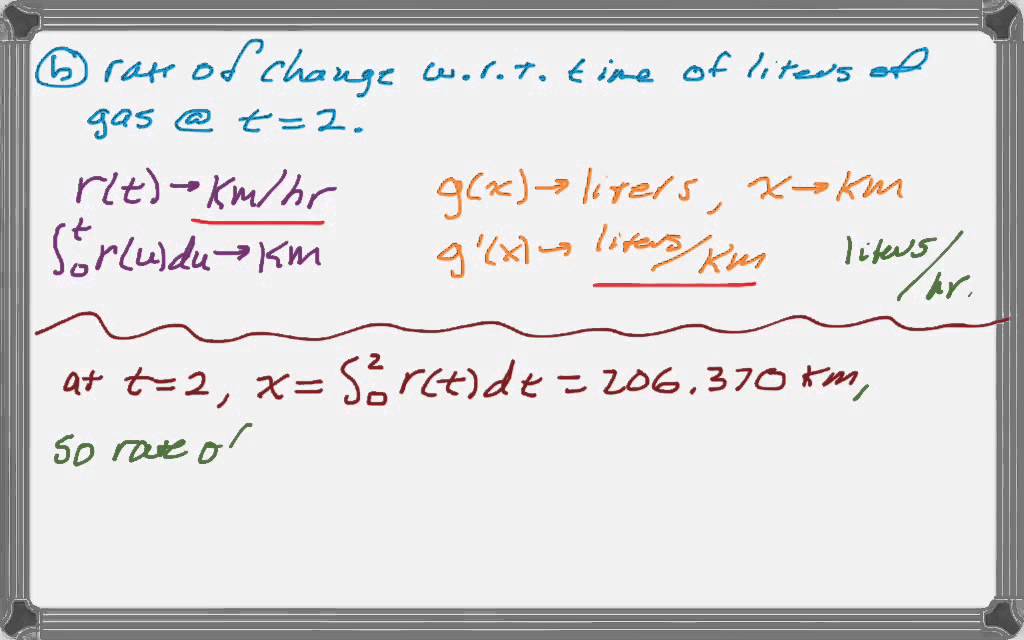 (b) rate of change w.r.t. time of liters of
gas @ t=2.
r(t)→km/hr
g(x)→liters, x→km
∫₀ᵗ r(u)du→km
g'(x)→liters/km
liters/hr.
at t=2, x=∫₀² r(t)dt=206.370 km,
so rate of